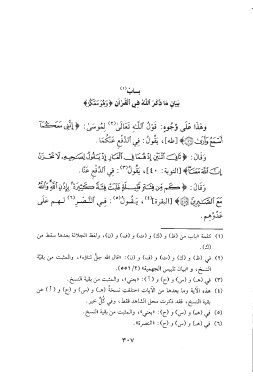 باب(١)
بيان ما ذكر الله في القرآن ﴿وَهُوَ مَعَكُمْ﴾
وهذا على وجوه: قول الله تعالى(٢) لموسى: ﴿إِنَّنِي مَعَكُمَا
أَسْمَعُ وَأَرَىٰ﴾ [طه]، يقول: في الدفع عنكما.
وقال: ﴿ثَانِيَ اثْنَيْنِ إِذْ هُمَا فِي الْغَارِ إِذْ يَقُولُ لِصَاحِبِهِ لَا تَحْزَنْ
إِنَّ اللَّهَ مَعَنَا﴾ [التوبة: ٤٠]، يقول(٣): في الدفع عنا.
وقال: ﴿كَم مِّن فِئَةٍ قَلِيلَةٍ غَلَبَتْ فِئَةً كَثِيرَةً بِإِذْنِ اللَّهِ وَاللَّهُ
مَعَ الصَّابِرِينَ﴾ [البقرة](٤)، يقول(٥): في النصر(٦) لهم على
عدوهم.
(١) كلمة «باب» من (ظ) و(ك) و(ت) و(ف) و(ن)، ولفظ الجلالة بعدها سقط من
(ك).
(٢) في (ظ) و(ك) و(ت) و(ف) و(ن): «قال الله جل ثناؤه»، والمثبت من بقية
النسخ، و«بيان تلبيس الجهمية»
(٣) في (هـ) و(س) و(ج) و(أ): «يعني»، والمثبت من بقية النسخ.
(٤) هذه الآية وما بعدها من الآيات اختلفت نسخة (هـ) و(س) و(ج) و(أ) عن
بقية النسخ، فقد ذكرت محل الشاهد فقط، وفي كلٍّ خير.
(٥) في (هـ) و(س) و(ج): «يعني»، والمثبت من بقية النسخ.
(٦) في (هـ) و(س) و(ج): «النصرة».
٣٠٧